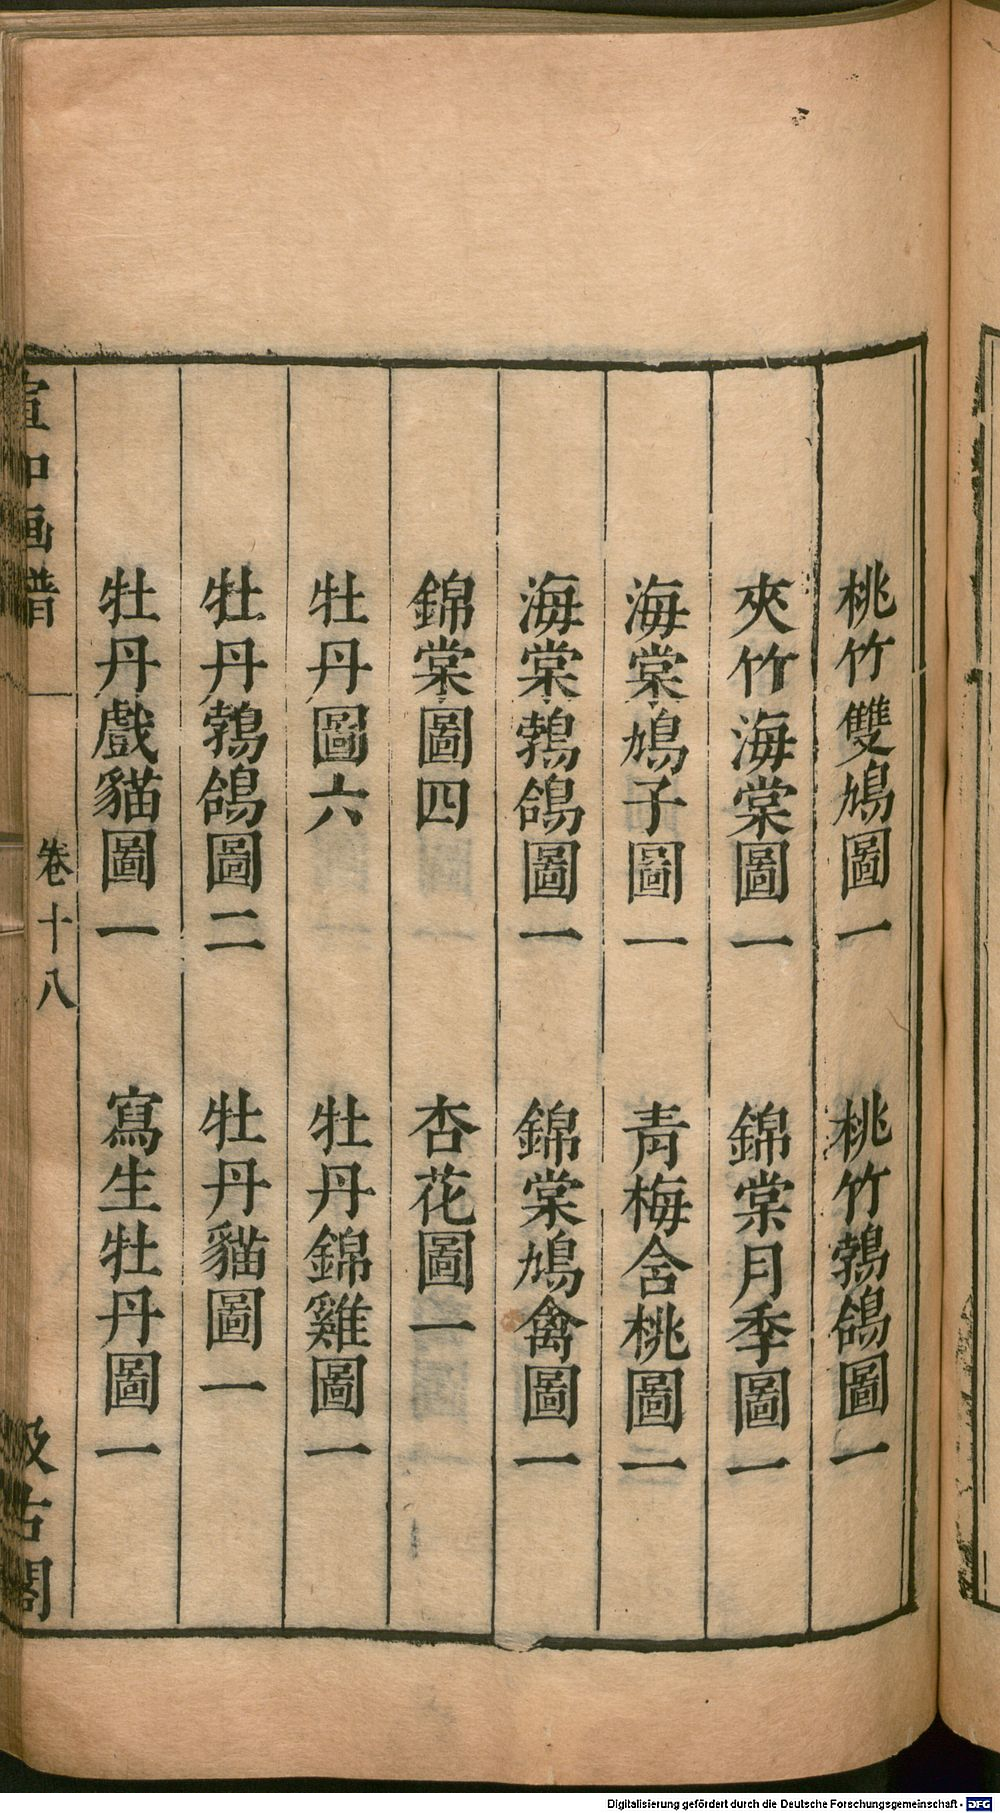 桃竹雙鳩圖一 桃竹鵓鴿圖一
夾竹海棠圖一 錦棠月季圖一
海棠鳩子圖一 青梅含桃圖一
海棠鵓鴿圖一 錦棠鳩禽圖一
錦棠圖四 杏花圖一
牡丹圖六 牡丹錦雞圖一
牡丹鵓鴿圖二 牡丹貓圖一
牡丹戲貓圖一 寫生牡丹圖一
宣和画譜 卷十八 汲古閣
Digitalisierung gefördert durch die Deutsche Forschungsgemeinschaft - DFG